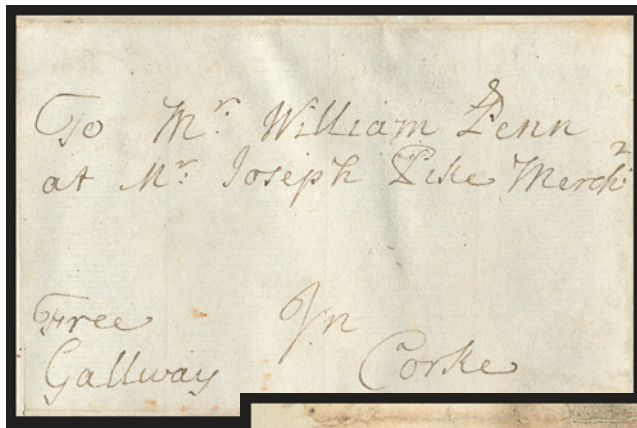 To Mr. William Penn
at Mr. Joseph Pike Mercht
Free In
Gallway Corke